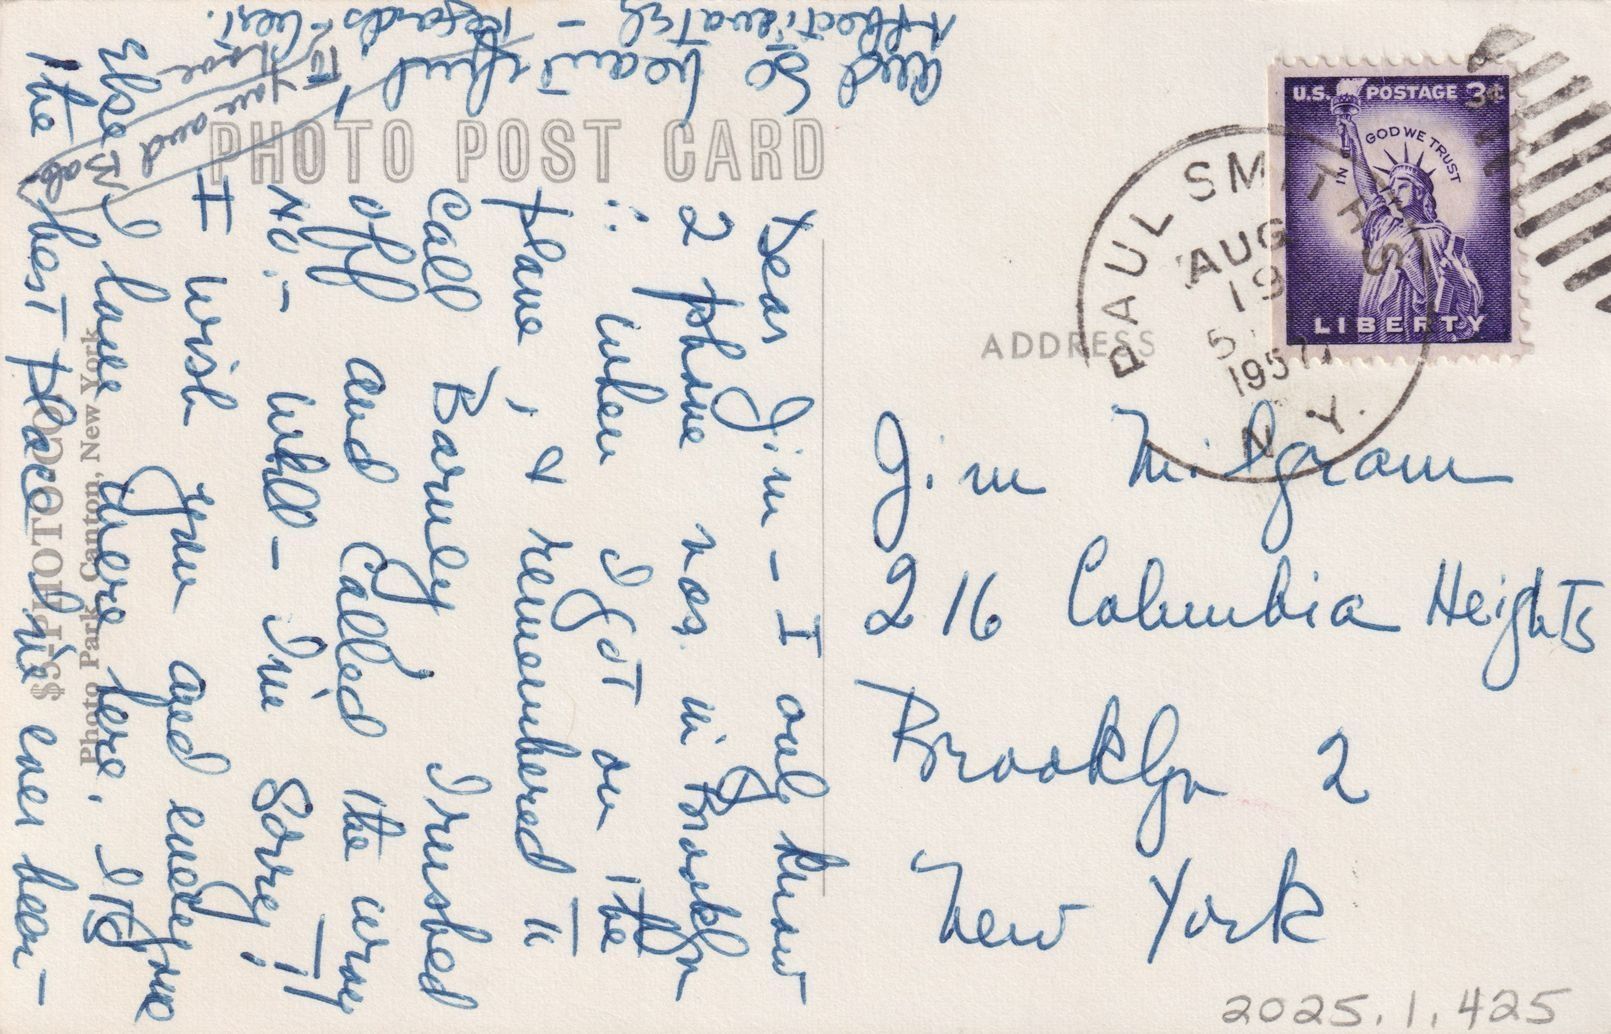 PHOTO POST CARD
Dear Jim - I only know
2 phone nos. in Brooklyn
∴ when I got on the
plane, & remembered to
call Barney I rushed
off and called the wrong
No. - well - I'm sorry!!
I wish you and everyone
else I love were here. It's
the best place I've ever been -
and so beautiful!
Affectionately - Regards
love
to you and
Bab
$3-PHOTO CO.
Photo Park, Canton, New York
ADDRESS
PAUL SMITHS
AUG
19
1957
N.Y.
U.S. POSTAGE 3¢
IN GOD WE TRUST
LIBERTY
Jim Milgram
216 Columbia Heights
Brooklyn 2
New York
2025.1.425